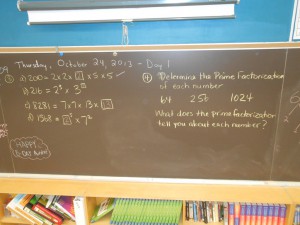 Thursday, October 24, 2013 - Day 1
a) 200 = 2 x 2 x 2 x 5 x 5 ✓
b) 216 = 2³ x 3
c) 8281 = 7 x 7 x 13 x 13
d) 1568 = 2 x 7²
HAPPY
B-DAY
④ Determine the Prime Factorization
of each number
64 256 1024
What does the prime factorization
tell you about each number?